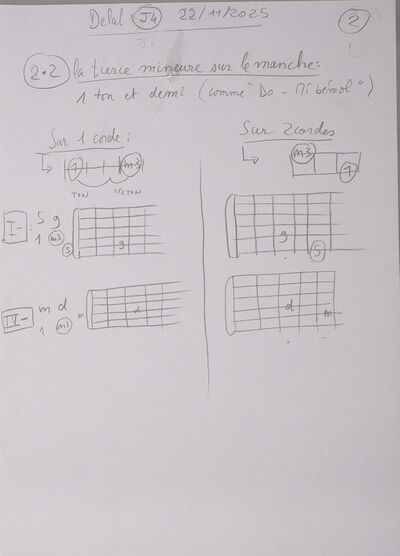 Delal J4 22/11/2025 2
2.2 la tierce mineure sur le manche:
1 ton et demi (comme "Do - Mi bémol")
Sur 1 corde:
1 m3
TON 1/2 TON
Sur 2 cordes
m3
1
I- : S g
1 m3
S
g
g
S
IV- m d
1 m3
m
d
d
m